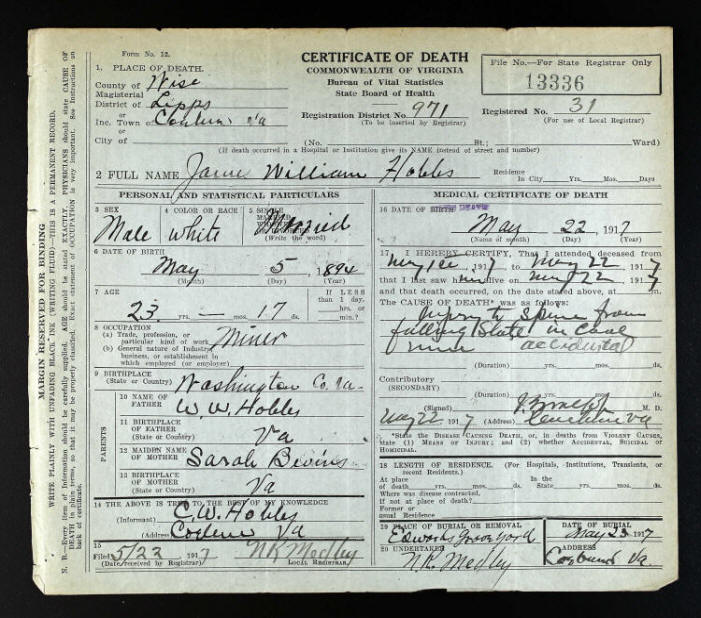 Form No. 12.
CERTIFICATE OF DEATH
COMMONWEALTH OF VIRGINIA
Bureau of Vital Statistics
State Board of Health
File No.—For State Registrar Only
13336
1. PLACE OF DEATH.
County of Wise
Magisterial
District of Lipps
or
Inc. Town of Va
or
City of
Registration District No. 971
(To be inserted by Registrar)
Registered No. 31
(For use of Local Registrar)
(No. St.; Ward)
(If death occurred in a Hospital or Institution give its NAME instead of street and number)
2 FULL NAME James William Hobbs
Residence
In City yrs. Mos. Days
PERSONAL AND STATISTICAL PARTICULARS
3 SEX
Male
4 COLOR OR RACE
white
5 SINGLE
MARRIED
Married
(Write the word)
6 DATE OF BIRTH
May 5, 1894
(Month) (Day) (Year)
7 AGE
23 yrs. — mos. 17 ds.
If LESS
than 1 day,
hrs. or
min.?
8 OCCUPATION
(a) Trade, profession, or
particular kind of work Miner
(b) General nature of Industry,
business, or establishment in
which employed (or employer)
9 BIRTHPLACE
(State or Country) Washington Co. Va.
PARENTS
10 NAME OF
FATHER W. W. Hobbs
11 BIRTHPLACE
OF FATHER
(State or Country) Va
12 MAIDEN NAME
OF MOTHER Sarah Bivins
13 BIRTHPLACE
OF MOTHER
(State or Country) Va
14 THE ABOVE IS TRUE TO THE BEST OF MY KNOWLEDGE
(Informant) C. W. Hobbs
(Address) Va
15
Filed 5/23 1917 N K Medley
(Date received by Registrar) LOCAL REGISTRAR
MEDICAL CERTIFICATE OF DEATH
16 DATE OF DEATH
May 22, 1917
(Name of month) (Day) (Year)
17 I HEREBY CERTIFY, That I attended deceased from
1917 to May 22 1917
that I last saw him alive on May 22 1917
and that death occurred, on the date stated above, at m.
The CAUSE OF DEATH* was as follows:
Injury to spine from
falling Slate in Coal
mine accidental
(Duration) yrs. mos. ds.
Contributory
(SECONDARY)
(Duration) yrs. mos. ds.
(Signed) M. D.
May 22 1917 (Address) Va
*State the DISEASE CAUSING DEATH, or, in deaths from VIOLENT CAUSES,
state (1) MEANS OF INJURY; and (2) whether ACCIDENTAL, SUICIDAL or
HOMICIDAL.
18 LENGTH OF RESIDENCE. (For Hospitals, Institutions, Transients, or
recent Residents.)
At place In the
of death yrs. mos. ds. State yrs. mos. ds.
Where was disease contracted,
if not at place of death?
Former or
usual Residence
19 PLACE OF BURIAL OR REMOVAL
Edwards Grave yard
DATE OF BURIAL
May 23 1917
20 UNDERTAKER
N. K. Medley
ADDRESS
Coeburn Va.
MARGIN RESERVED FOR BINDING
WRITE PLAINLY WITH UNFADING BLACK INK (WRITING FLUID)—THIS IS A PERMANENT RECORD.
N. B.—Every item of Information should be carefully supplied. AGE should be stated EXACTLY. PHYSICIANS should state CAUSE OF
DEATH in plain terms, so that it may be properly classified. Exact statement of OCCUPATION is very important. See Instructions on
back of certificate.